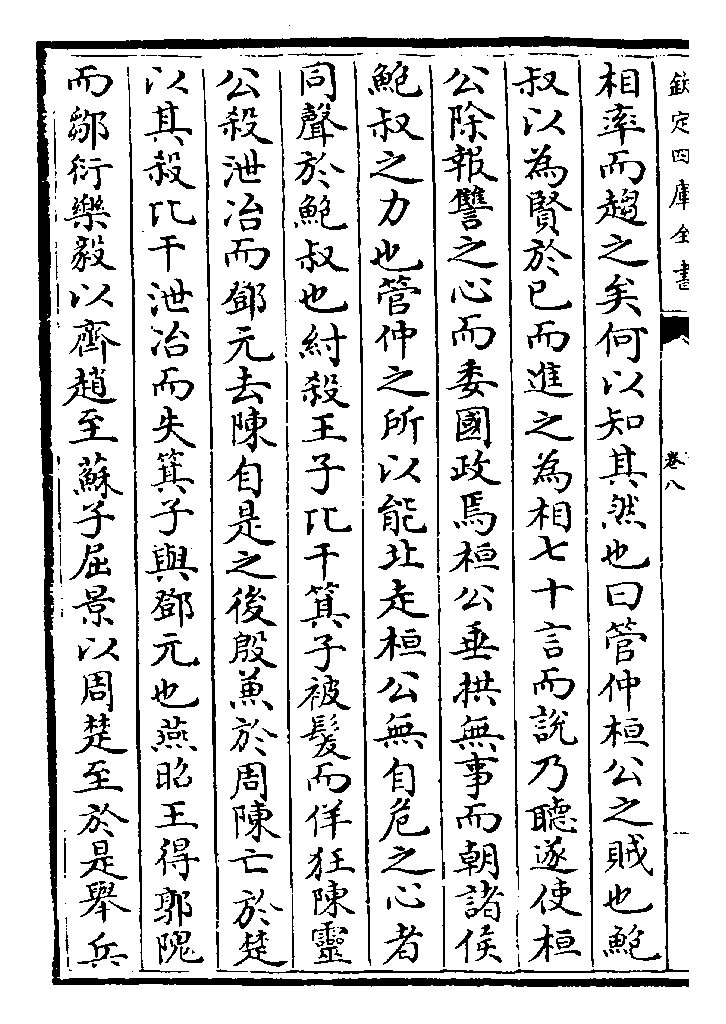 欽定四庫全書
卷八
相率而趨之矣何以知其然也曰管仲桓公之賊也鮑
叔以為賢於已而進之為相七十言而說乃聽遂使桓
公除報讐之心而委國政焉桓公垂拱無事而朝諸侯
鮑叔之力也管仲之所以能北走桓公無自危之心者
同聲於鮑叔也紂殺王子比干箕子被髮而佯狂陳靈
公殺泄冶而鄧元去陳自是之後殷兼於周陳亡於楚
以其殺比干泄冶而失箕子與鄧元也燕昭王得郭隗
而鄒衍樂毅以齊趙至蘇子屈景以周楚至於是舉兵